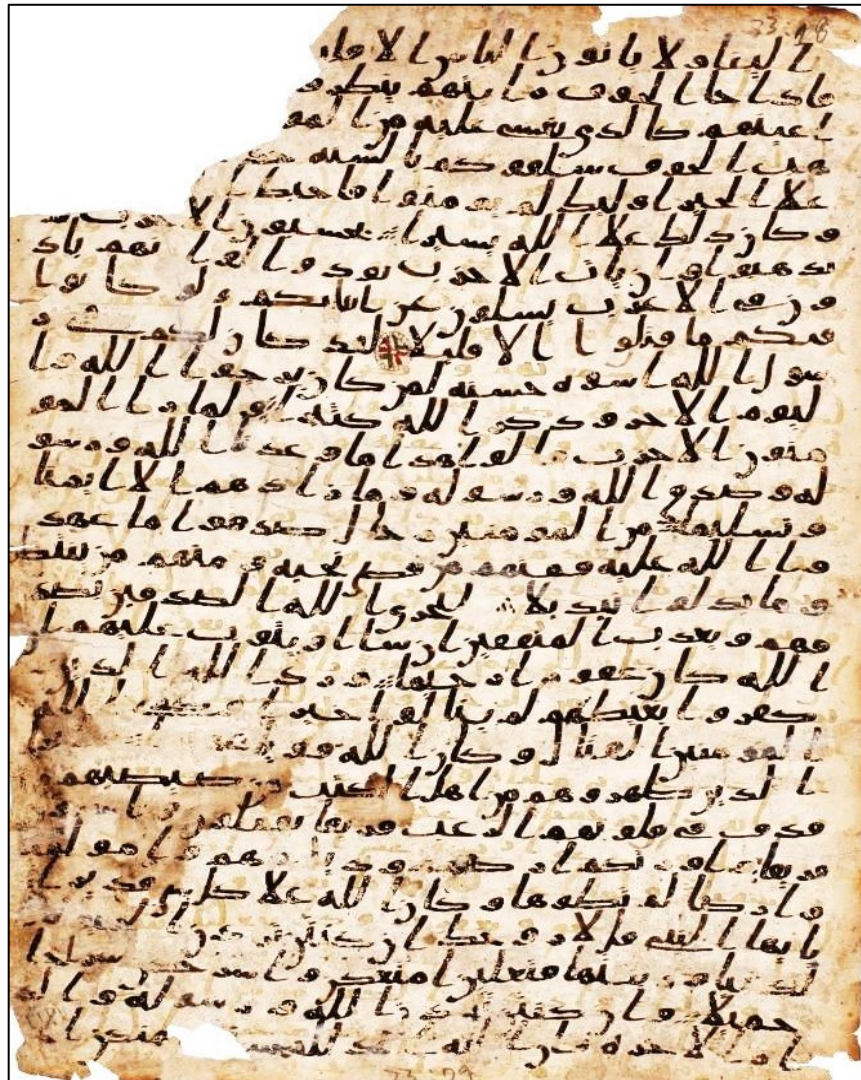 33:18
الينا ولا ياتون الباس الا قليـ
فاذا جا الخوف رايتهم ينظرو
اعينهم كالذي يغشى عليه من المو
هب الخوف سلقوكم بالسنة حد
علا الخير اوليك لم يومنوا فاحبط ا
وكان ذلك علا الله يسيرا يحسبون الاحزب لم
يذهبوا وان يات الاحزب يودوا لو انهم باد
ون في الاعرب يسلون عن انبايكم ولو كانوا
فيكم ما قتلوا الا قليلا لقد كان لكم في ر
سول الله اسوة حسنة لمن كان يرجوا الله وا
ليوم الاخر وذكر الله كثيرا ولما را المو
منون الاحزب قالوا هذا ما وعدنا الله ورسو
له وصدق الله ورسوله وما زادهم الا ايمنا
وتسليما من المومنين رجال صدقوا ما عهد
وا الله عليه فمنهم من قضى نحبه ومنهم من ينتظر
وما بدلوا تبديلا ليجزي الله الصدقين بصد
قهم ويعذب المنفقين ان شا او يتوب عليهم ا
ن الله كان غفورا رحيما ورد الله الذين
كفروا بغيظهم لم ينالوا خيرا وكفى الله
المومنين القتال وكان الله قويا
الذين ظهروهم من اهل الكتب من صيصيهم و
قذف في قلوبهم الرعب فريقا تقتلون وتاسرون
فريقا واورثكم ارضهم وديرهم وامولهم
وارضا لم تطوها وكان الله علا كل شي قديرا
يايها النبي قل لازوجك ان كنتن تردن
لدنيا وزينتها فتعلين امتعكن واسرحكن سرحا
جميلا وان كنتن تردن الله ورسوله والد
ار الاخرة فان الله اعد للمحسنت منكن ا
33:29